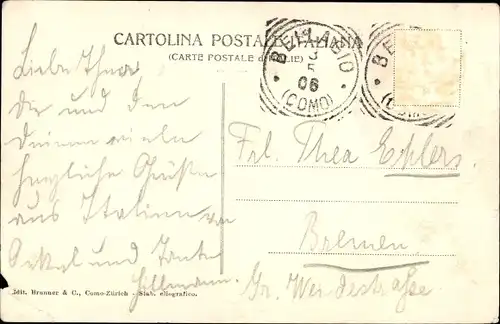 CARTOLINA POSTALE ITALIANA
(CARTE POSTALE d'ITALIE)
BELLAGIO
3
5
06
(COMO)
BE
Liebe Thea,
Dir und den
Deinen viele
herzliche Grüße
aus Italien von
Onkel und Tante
Hellmann.
Frl. Thea Ehlers.
Bremen
Gr. Weidestraße
Edit. Brunner & C., Como-Zürich - Stab. eliografico.